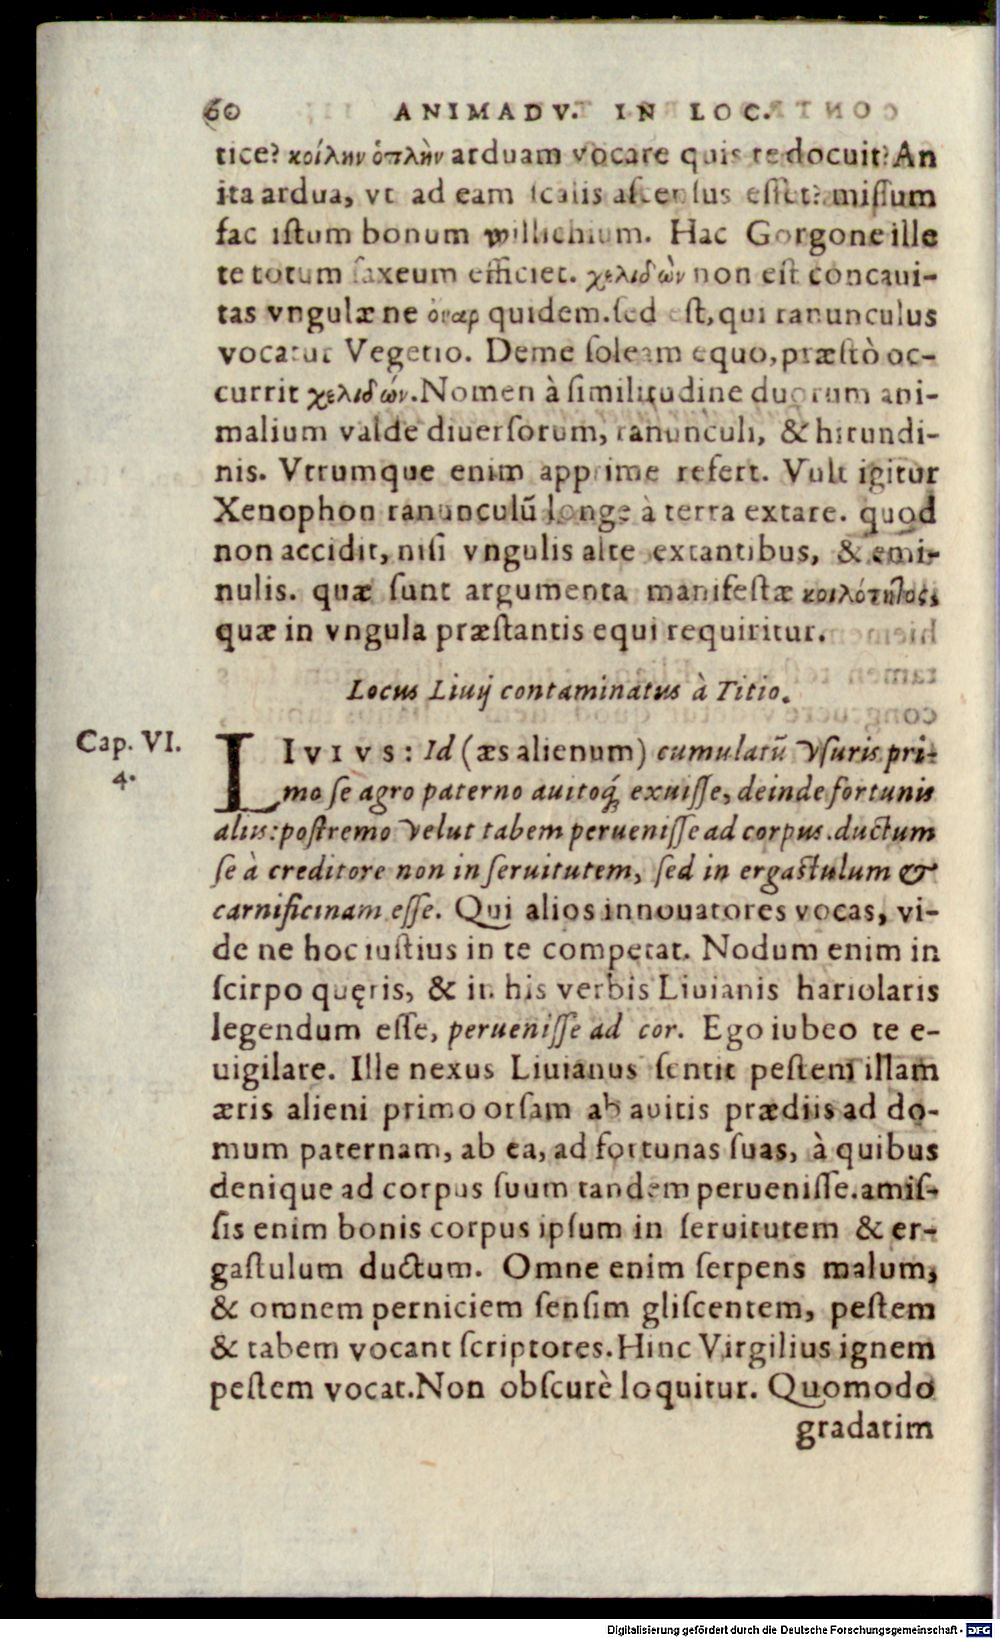 60 ANIMADV. IN LOC.
tice? κοίλην ὁπλὴν arduam vocare quis te docuit? An
ita ardua, vt ad eam scalis ascensus esset? missum
fac istum bonum willichium. Hac Gorgone ille
te totum saxeum efficiet. χελιδὼν non est concaui-
tas vngulæ ne ὄναρ quidem. sed est, qui ranunculus
vocatur Vegetio. Deme soleam equo, præstò oc-
currit χελιδών. Nomen à similitudine duorum ani-
malium valde diuersorum, ranunculi, & hirundi-
nis. Vtrumque enim apprime refert. Vult igitur
Xenophon ranunculũ longe à terra extare. quod
non accidit, nisi vngulis alte extantibus, & emi-
nulis. quæ sunt argumenta manifestæ κοιλότητος,
quæ in vngula præstantis equi requiritur.
Locus Liuij contaminatus à Titio.
Cap. VI.
4.
LIVIVS: Id (æs alienum) cumulatũ vsuris pri-
mo se agro paterno auitoq́; exuisse, deinde fortunis
aliis: postremo velut tabem peruenisse ad corpus. ductum
se à creditore non in seruitutem, sed in ergastulum &
carnificinam esse. Qui alios innouatores vocas, vi-
de ne hoc iustius in te competat. Nodum enim in
scirpo quęris, & in his verbis Liuianis hariolaris
legendum esse, peruenisse ad cor. Ego iubeo te e-
uigilare. Ille nexus Liuianus sentit pestem illam
æris alieni primo orsam ab auitis prædiis ad do-
mum paternam, ab ea, ad fortunas suas, à quibus
denique ad corpus suum tandem peruenisse. amis-
sis enim bonis corpus ipsum in seruitutem & er-
gastulum ductum. Omne enim serpens malum,
& omnem perniciem sensim gliscentem, pestem
& tabem vocant scriptores. Hinc Virgilius ignem
pestem vocat. Non obscurè loquitur. Quomodo
gradatim
Digitalisierung gefördert durch die Deutsche Forschungsgemeinschaft - DFG